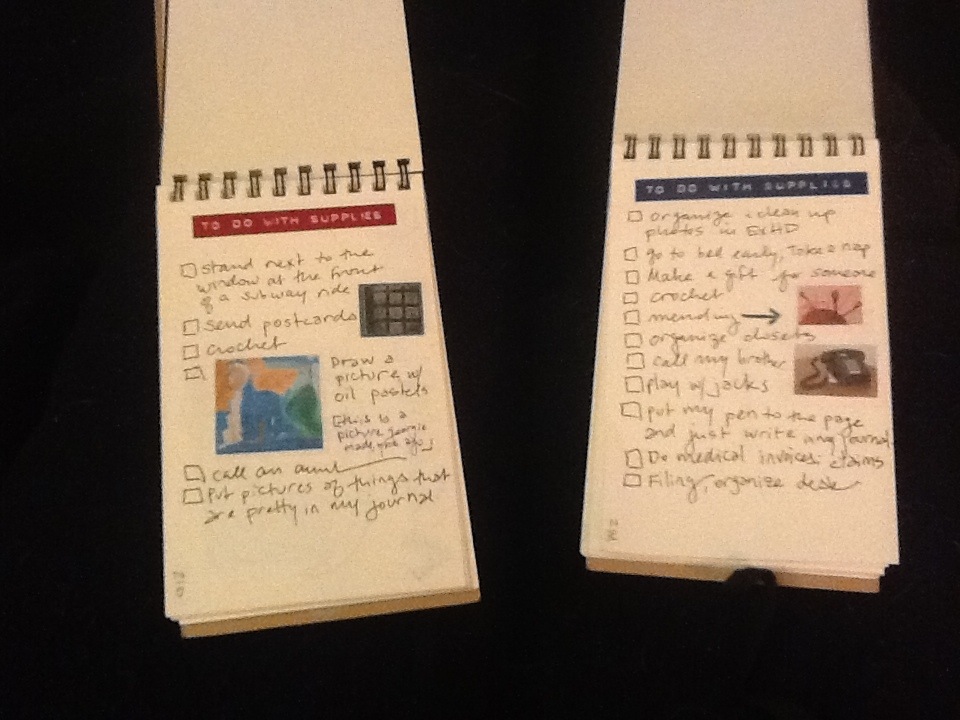 TO DO WITH SUPPLIES
stand next to the
window at the front
of a subway ride
send postcards
crochet
Draw a
picture w/
oil pastels
[this is a
picture georgie
made
call an aunt
Put pictures of things that
are pretty in my journal
TO DO WITH SUPPLIES
organize + clean up
photos in ExHD
go to bed early, Take a nap
Make a gift for someone
crochet
mending →
organize closets
call my brother
play w/ jacks
put my pen to the page
and just write in my journal
Do medical invoices, claims
Filing, organize desk